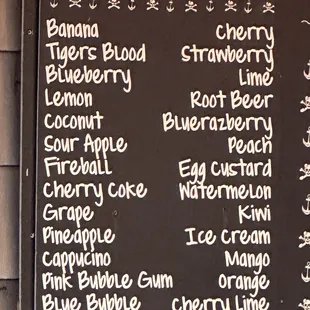 Banana Cherry
Tigers Blood Strawberry
Blueberry Lime
Lemon Root Beer
Coconut Bluerazberry
Sour Apple Peach
Fireball Egg Custard
Cherry Coke Watermelon
Grape Kiwi
Pineapple Ice Cream
Cappucino Mango
Pink Bubble Gum Orange
Blue Bubble Cherry Lime